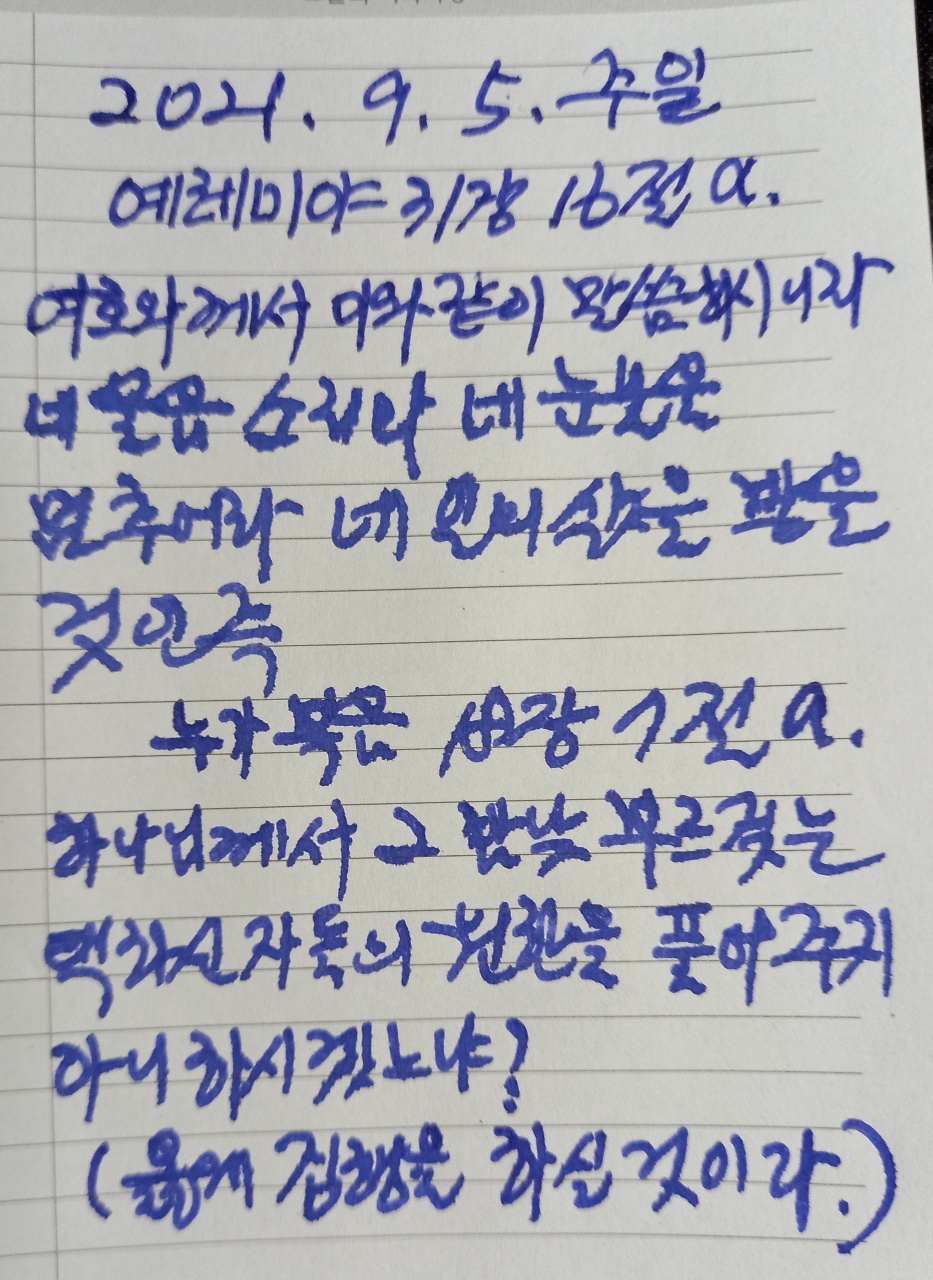 2021. 9. 5. 주일
예레미야 31장 16절 a.
여호와께서 이와 같이 말씀하시니라
네 울음 소리와 네 눈물을
멈추어라 네 일의 삯을 받을
것인즉
누가복음 18장 7절 a.
하나님께서 그 밤낮 부르짖는
택하신 자들의 원한을 풀어 주지
아니 하시겠느냐?
(옳게 집행을 하실 것이라.)